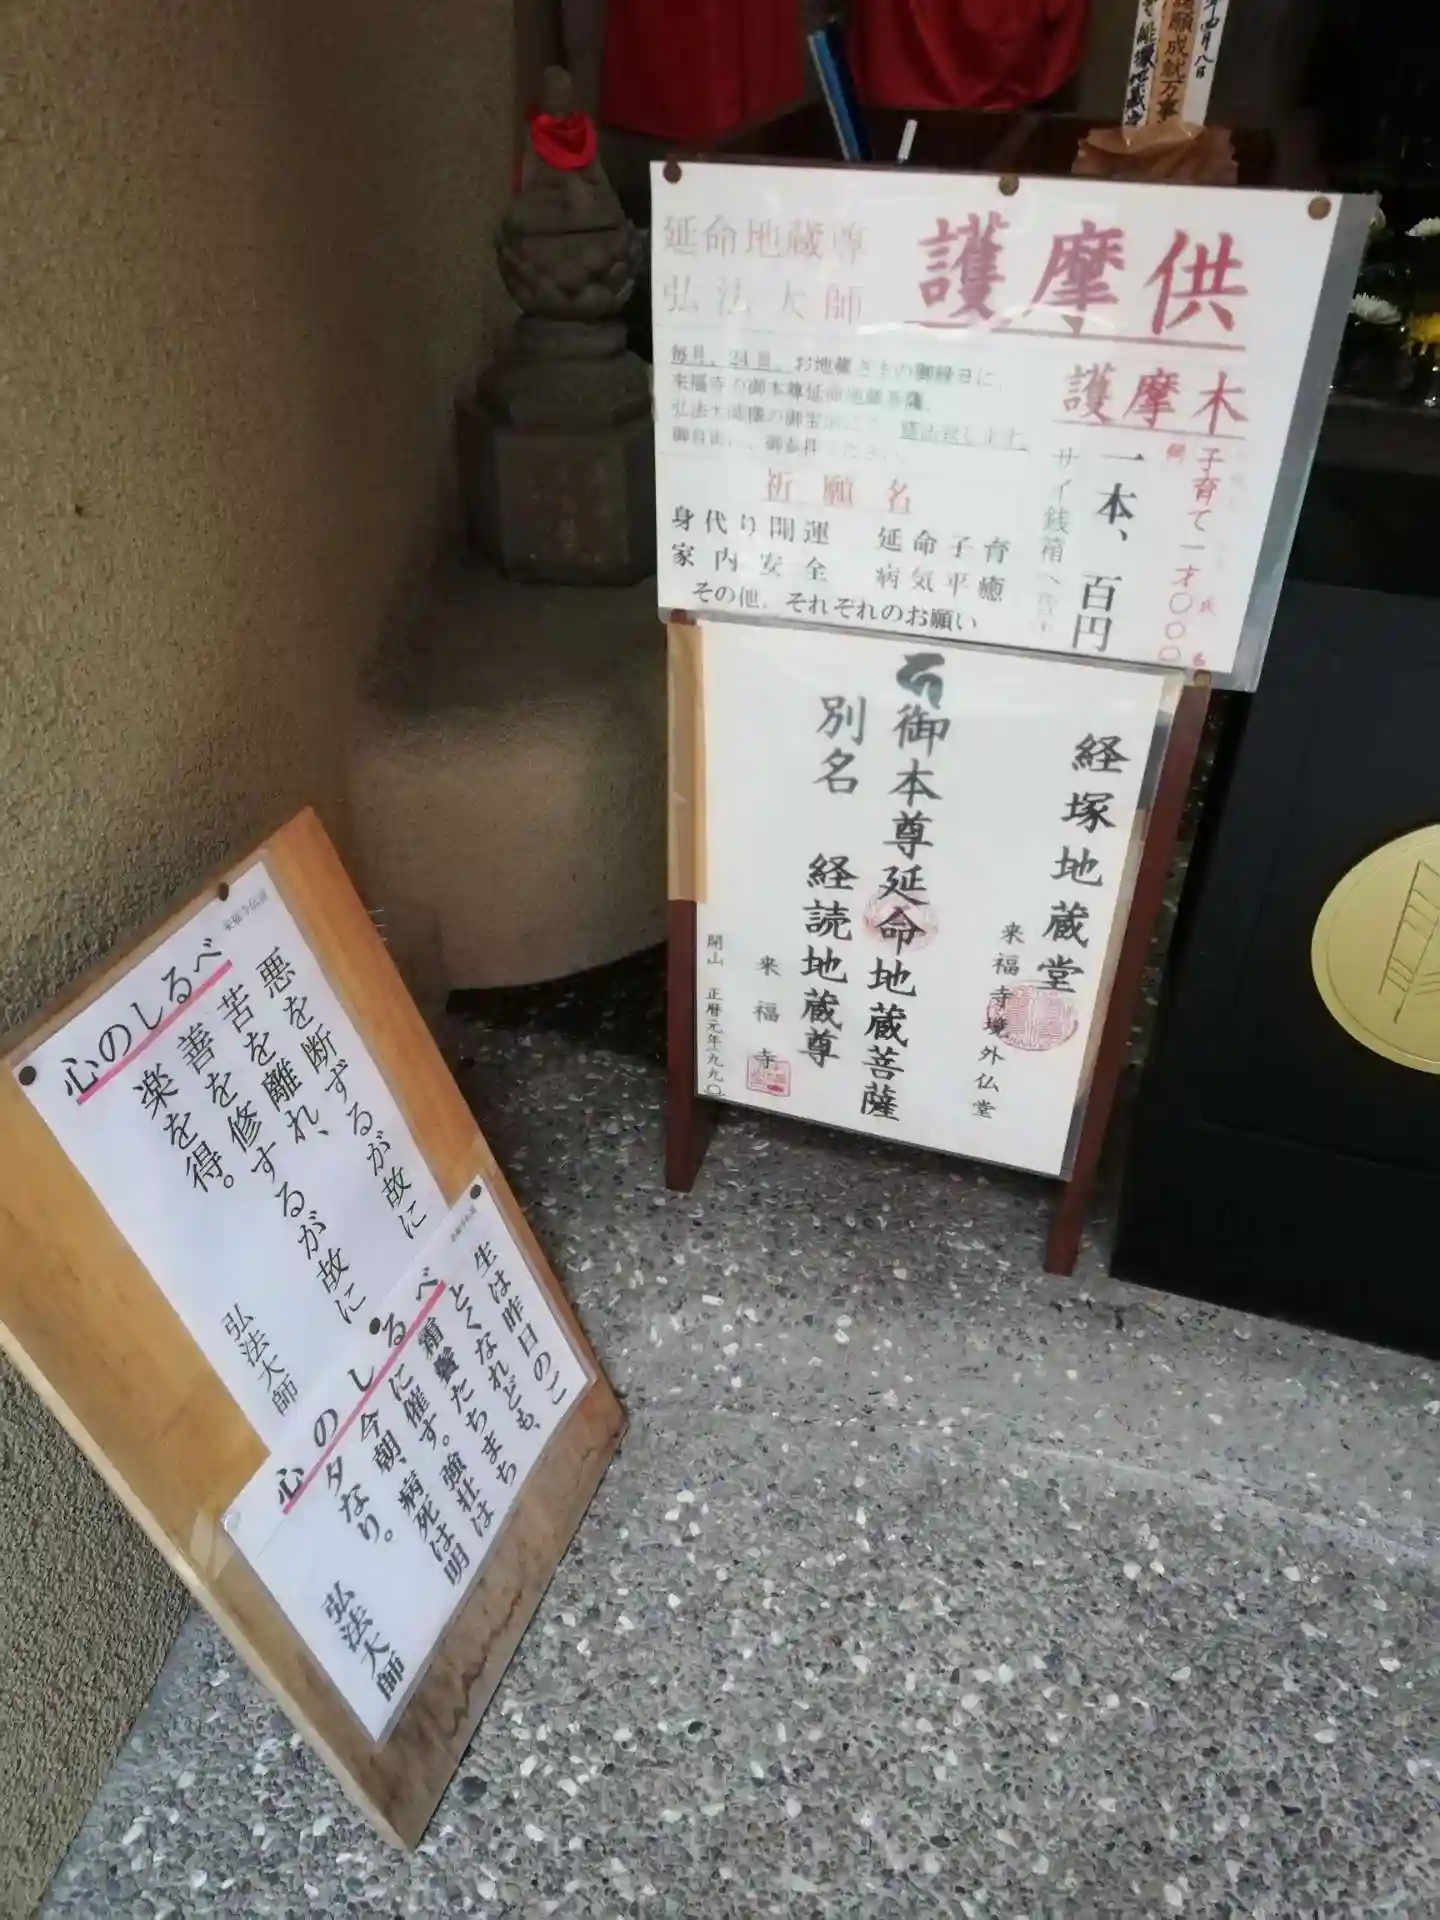 護摩供
延命地蔵尊
弘法大師
毎月、24日、お地蔵さまの御縁日に、
来福寺の御本尊延命地蔵菩薩、
弘法大師様の御宝前にて、修法致します。
御自由に、御参拝ください。
祈願名
身代り開運 延命子育
家内安全 病気平癒
その他、それぞれのお願い
護摩木
一本、百円
サイ銭箱へ
例
子育て一才〇〇〇
氏名
経塚地蔵堂
来福寺境外仏堂
御本尊延命地蔵菩薩
別名 経読地蔵尊
来福寺
開山 正暦元年九九〇
心のしるべ
来福寺伝道
悪を断ずるが故に
苦を離れ、
善を修するが故に
楽を得。
弘法大師
心のしるべ
生は昨日のご
とくなれども、
霜鬢たちまち
に催す。強壮は
今朝、病死は明
夕なり。
弘法大師
年四月八日
願成就万事